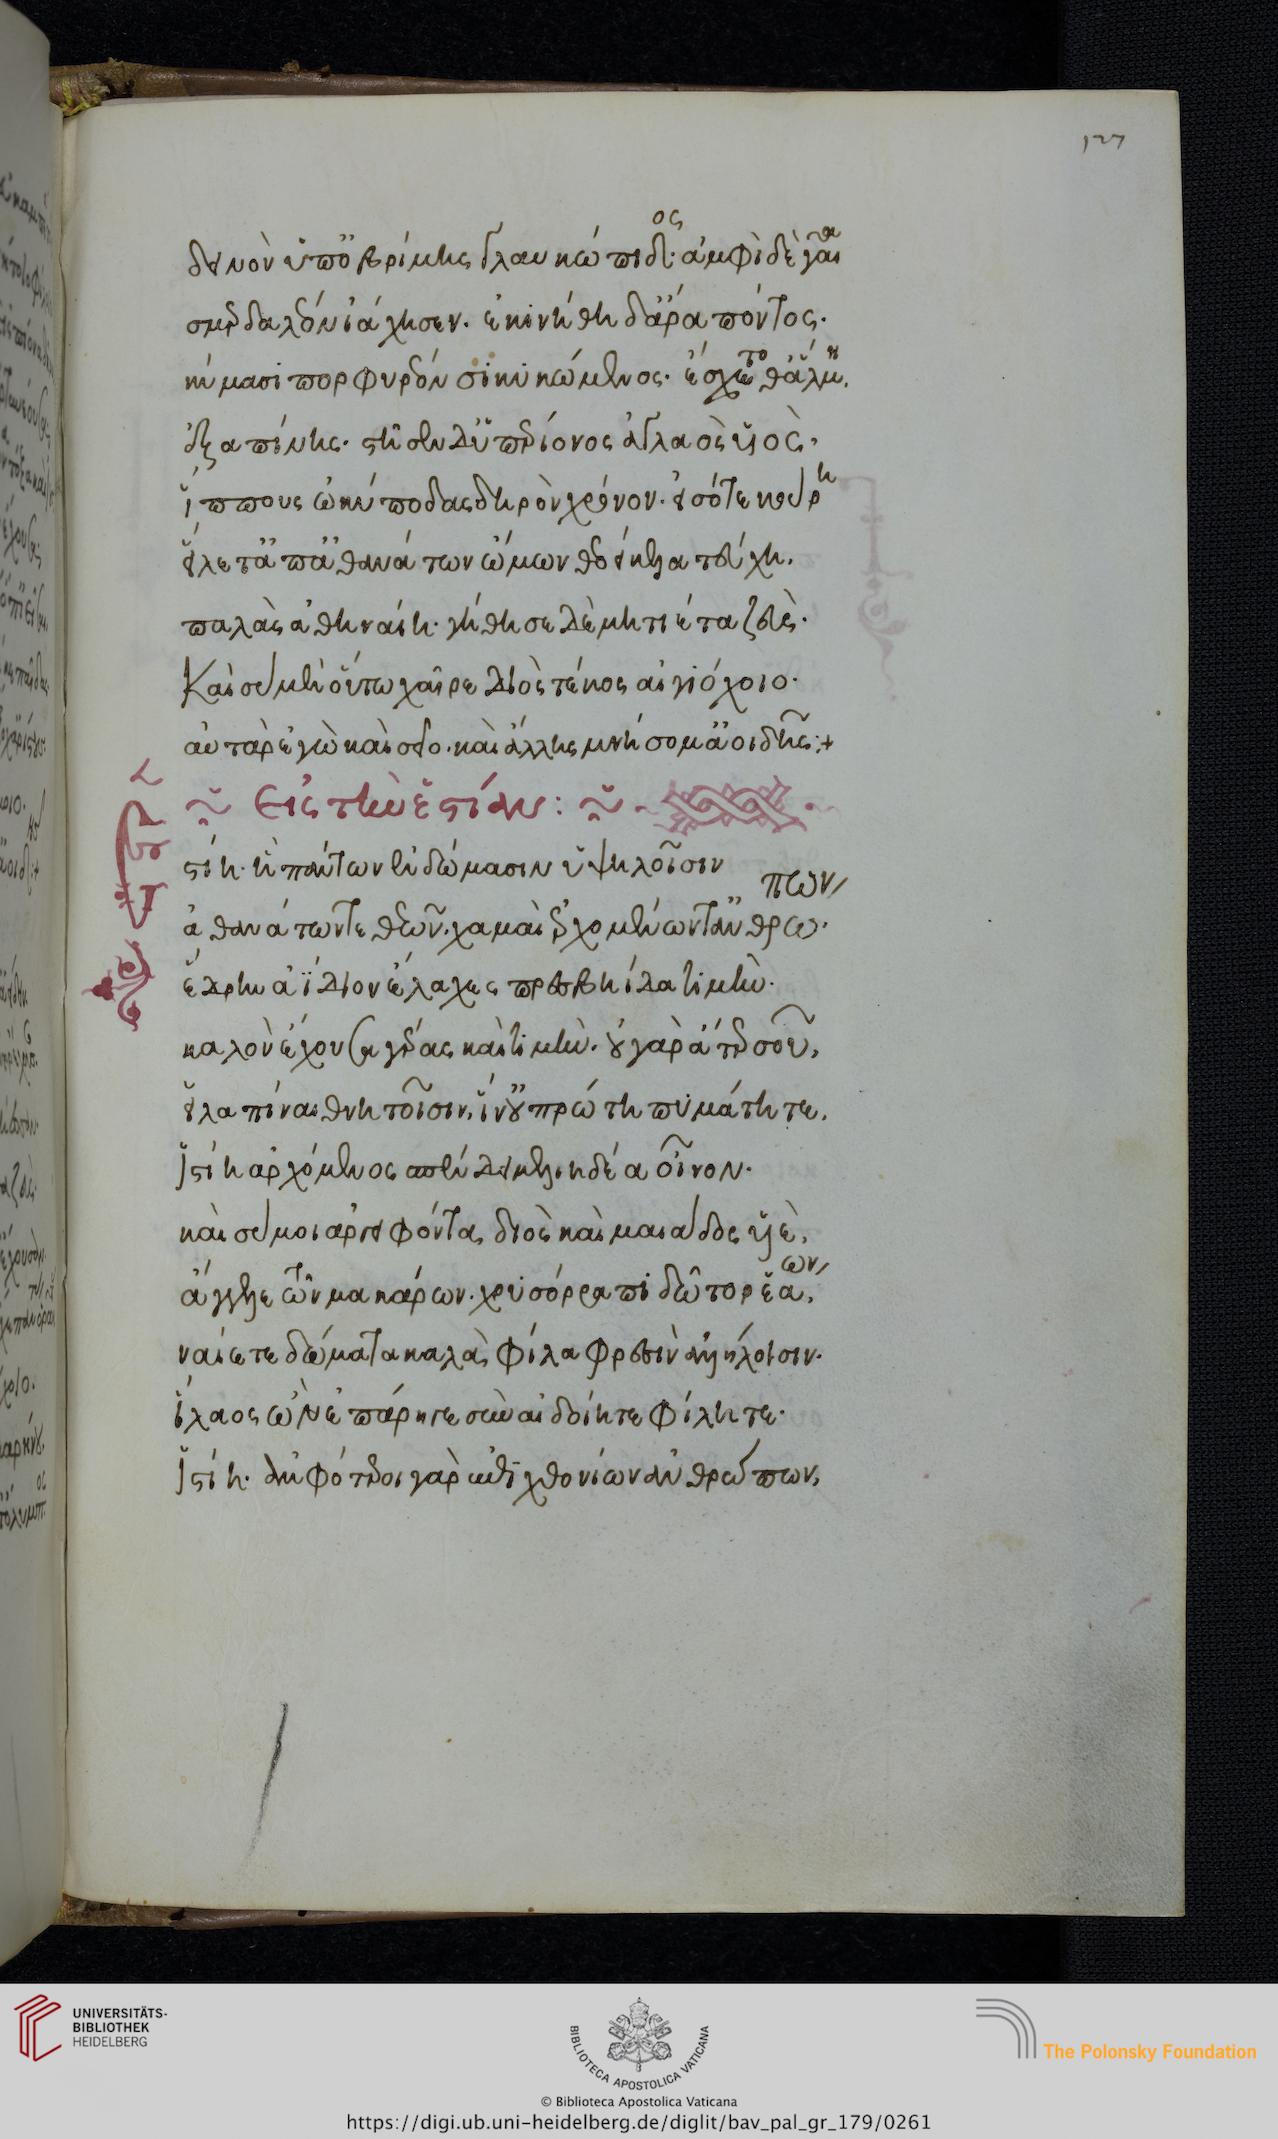 127
δεινὸν ὑπὸ βρίμης γλαυκώπιδος· ἀμφὶ δὲ γαῖα
σμερδαλέον ἰάχησεν. ἐκινήθη δ' ἄρα πόντος.
κύμασι πορφυρέοισι κυκώμενος. ἔσχετο δ' ἅλμη.
ἐξαπίνης. στῆσεν δ' ὑπερίονος ἀγλαὸς υἱὸς.
ἵππους ὠκύποδας δηρὸν χρόνον. εἰσότε κούρη
εἵλετ' ἀπ' ἀθανάτων ὤμων θεοείκελα τεύχη.
παλὰς ἀθηναίη. γήθησε δὲ μητιέτα ζεὺς.
Καὶ σὺ μὲν οὕτω χαῖρε διὸς τέκος αἰγιόχοιο.
αὐτὰρ ἐγὼ καὶ σεῖο. καὶ ἄλλης μνήσομ' ἀοιδῆς:+
Εἰς τὴν ἑστίαν:
στίη. ἣ πάντων ἐν δώμασιν ὑψηλοῖσιν
ἀθανάτων τε θεῶν. χαμαὶ ἐρχομένων τ' ἀνθρώπων
ἕδρην ἀΐδιον ἔλαχες πρεσβηίδα τιμὴν.
καλὸν ἔχουσα γέρας καὶ τιμὴν. οὐ γὰρ ἄτερ σοῦ,
εἰλαπίναι θνητοῖσιν, ἵν' οὐ πρώτη πυμάτη τε,
ἱστίη ἀρχόμενος σπένδει μελιηδέα οἶνον.
καὶ σύ μοι ἀργειφόντα, διὸς καὶ μαιάδος υἱὲ,
ἄγγελε τῶν μακάρων. χρυσόρραπι δῶτορ ἐάων,
ναίετε δώματα καλὰ, φίλα φρεσὶν ἀλλήλοισιν.
ἵλαος ὢν ἐπάρηγε σὺν αἰδοίη τε φίλη τε.
ἱστίη. ἀμφότεροι γὰρ ἐπιχθονίων ἀνθρώπων,
UNIVERSITÄTS-
BIBLIOTHEK
HEIDELBERG
BIBLIOTECA APOSTOLICA VATICANA
© Biblioteca Apostolica Vaticana
The Polonsky Foundation
https://digi.ub.uni-heidelberg.de/diglit/bav_pal_gr_179/0261